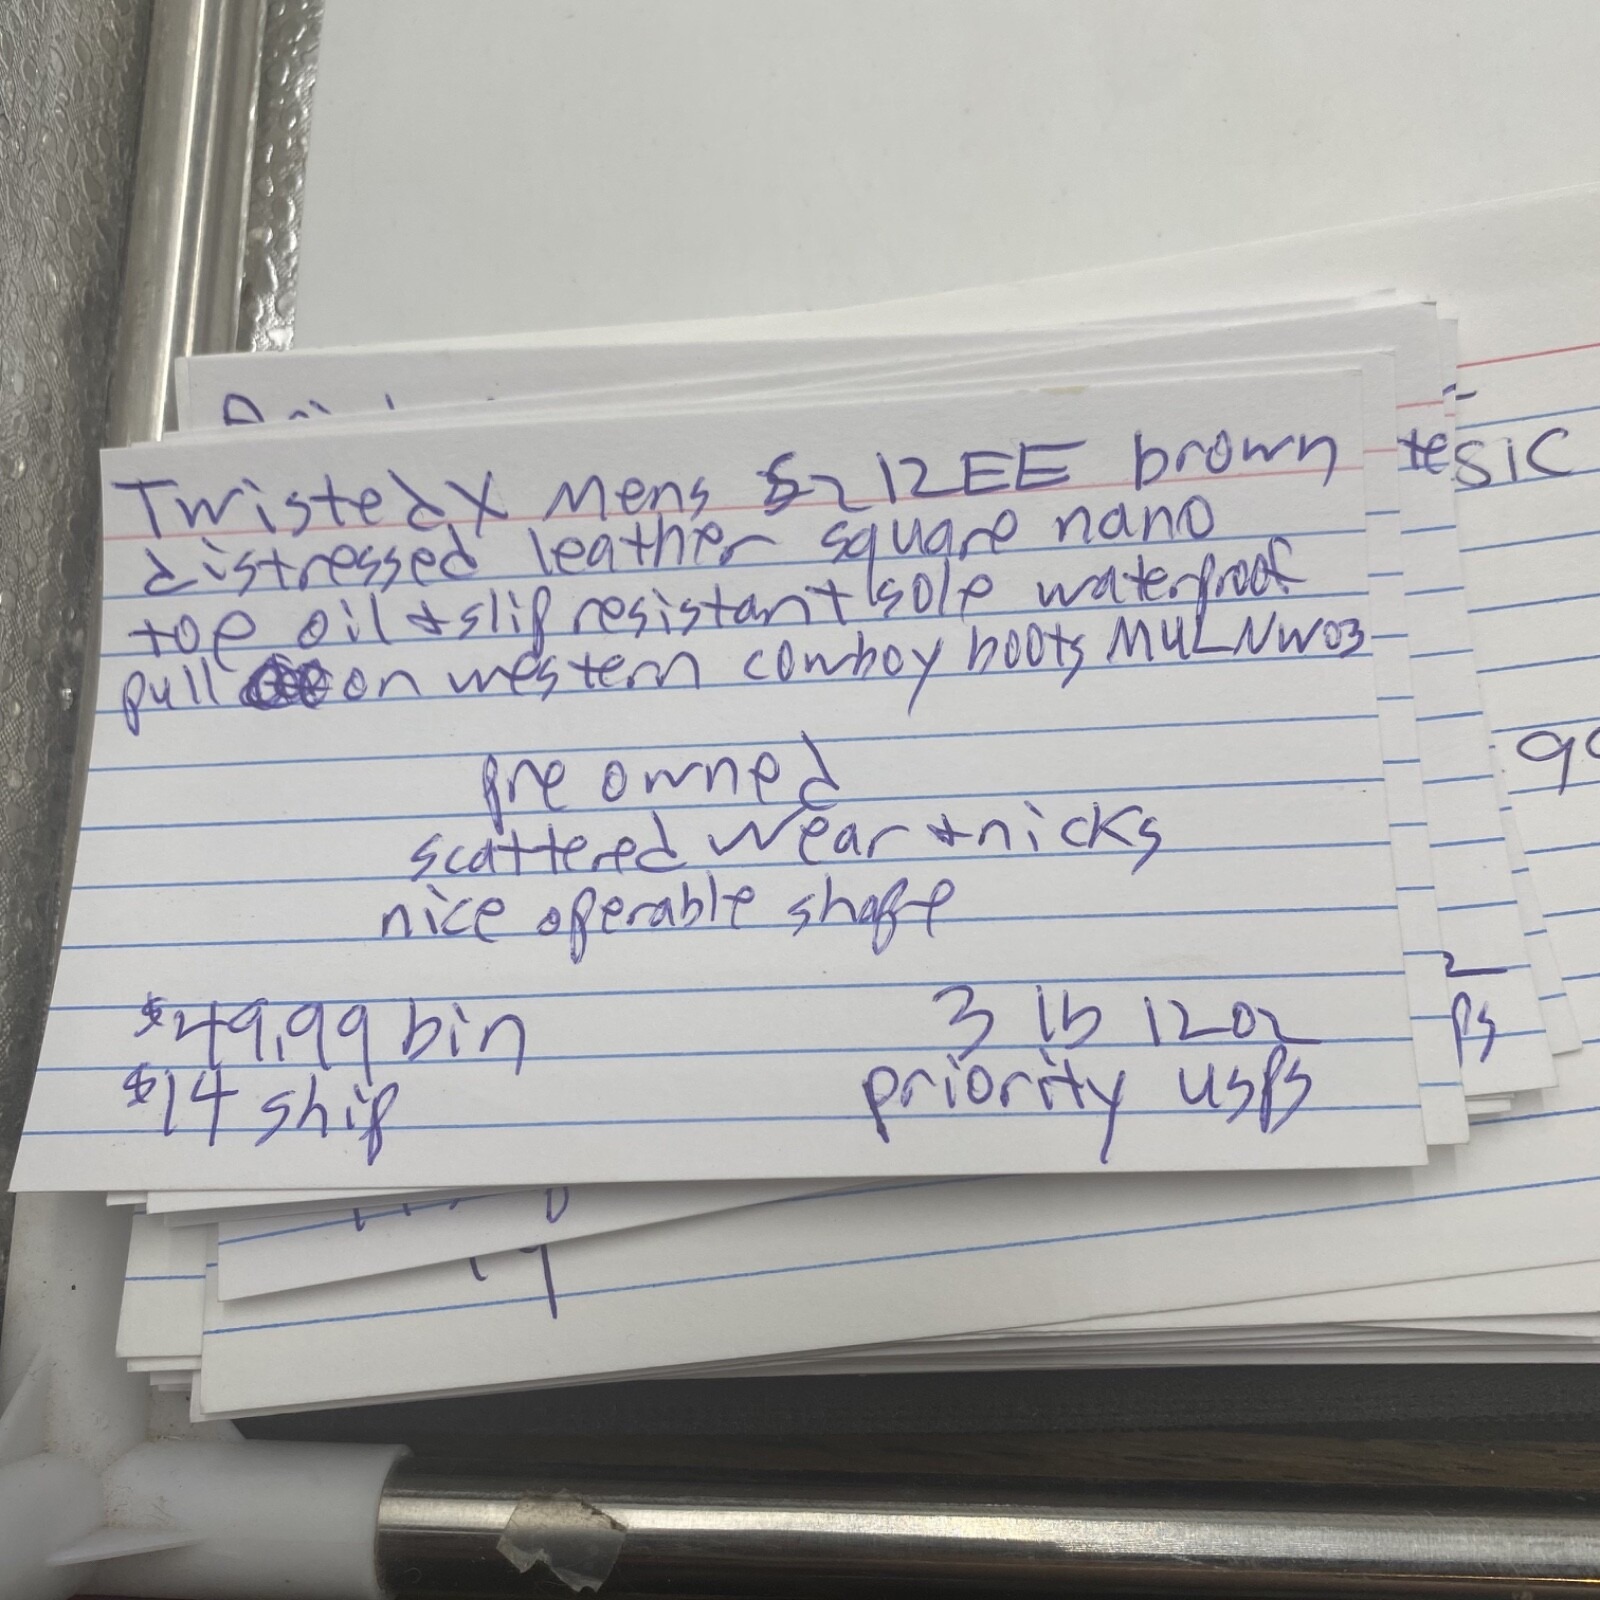 Twisted X Mens Sz 12EE brown
distressed leather square nano
toe oil & slip resistant sole waterproof
pull on western cowboy boots MULNW03
pre owned
scattered wear & nicks
nice operable shape
$49.99 bin
3 lb 12oz
$14 ship
priority usps
te
SIC
ps